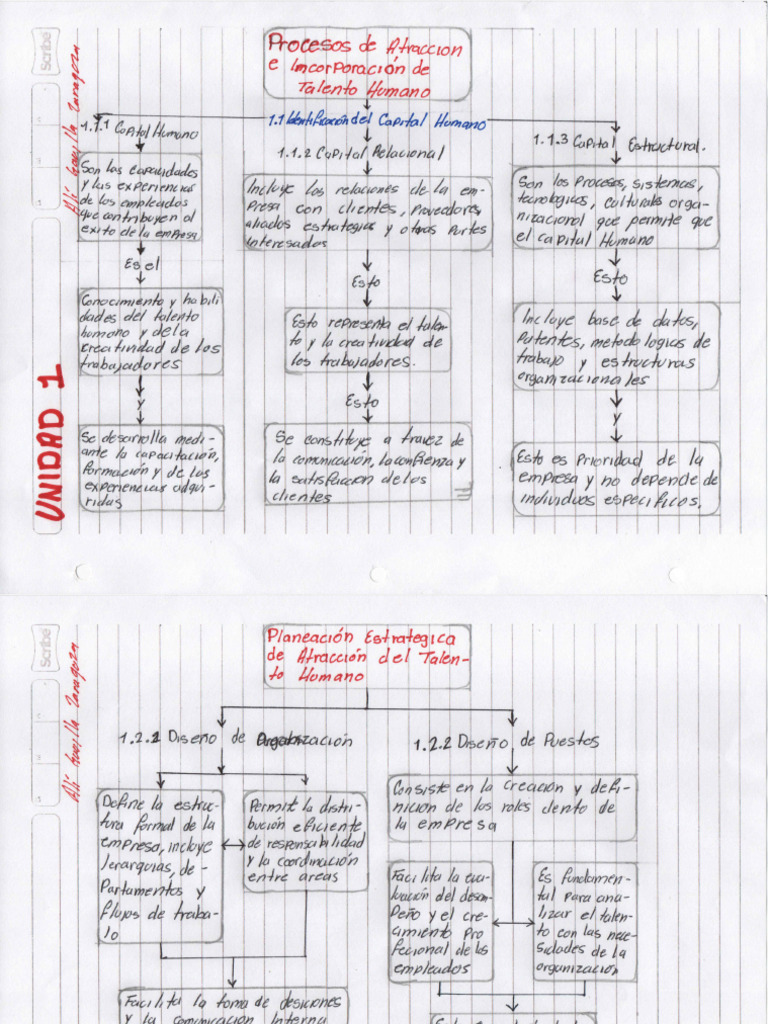 Scribe
UNIDAD 1
Procesos de Atraccion
e Incorporación de
Talento Humano
1.1 Identificación del Capital Humano
1.1.1 Capital Humano
Son las capacidades
y las experiencias
de los empleados
que contribuyen al
exito de la empresa
Es el
Conocimiento y habili
dades del talento
humano y de la
creatividad de los
trabajadores
y
Se desarrolla medi-
ante la capacitación,
formación y de las
experiencias adqui-
ridas
1.1.2 Capital Relacional
Incluye las relaciones de la em-
presa con clientes, proveedores,
aliados estrategios y otras partes
interesados
Esto
Esto representa el talen-
to y la creatividad de
los trabajadores.
Esto
Se constituye a travez de
la comunicación, la confienza y
la satisfacion de los
clientes
1.1.3 Capital Estructural.
Son los Procesos, sistemas,
tecnologicas, culturales orga-
nizacional que permite que
el capital Humano
Esto
Incluye base de datos,
Patentes, metodologias de
trabajo y estructuras
organizacionales
y
Esto es Prioridad de la
empresa y no depende de
individuos especificos.
Scribe
Planeación Estrategica
de Atracción del Talen-
to Humano
1.2.1 Diseño de Organización
Define la estruc-
tura formal de la
empresa, incluye
Jerarquias, de-
Partamentos y
flujos de traba-
jo
Permite la distri-
bución eficiente
de responsabilidad
y la coordinación
entre areas
Facilita la toma de desiciones
y la comunicación Interna
1.2.2 Diseño de Puestos
Consiste en la creación y defi-
nición de los roles dento de
la empresa
Facilita la eva-
luación del desem-
Peño y el cre-
cimiento pro
fecional de los
empleados
Es fundamen-
tal para ana-
lizar el talen-
to con las nece-
sidades de la
organización